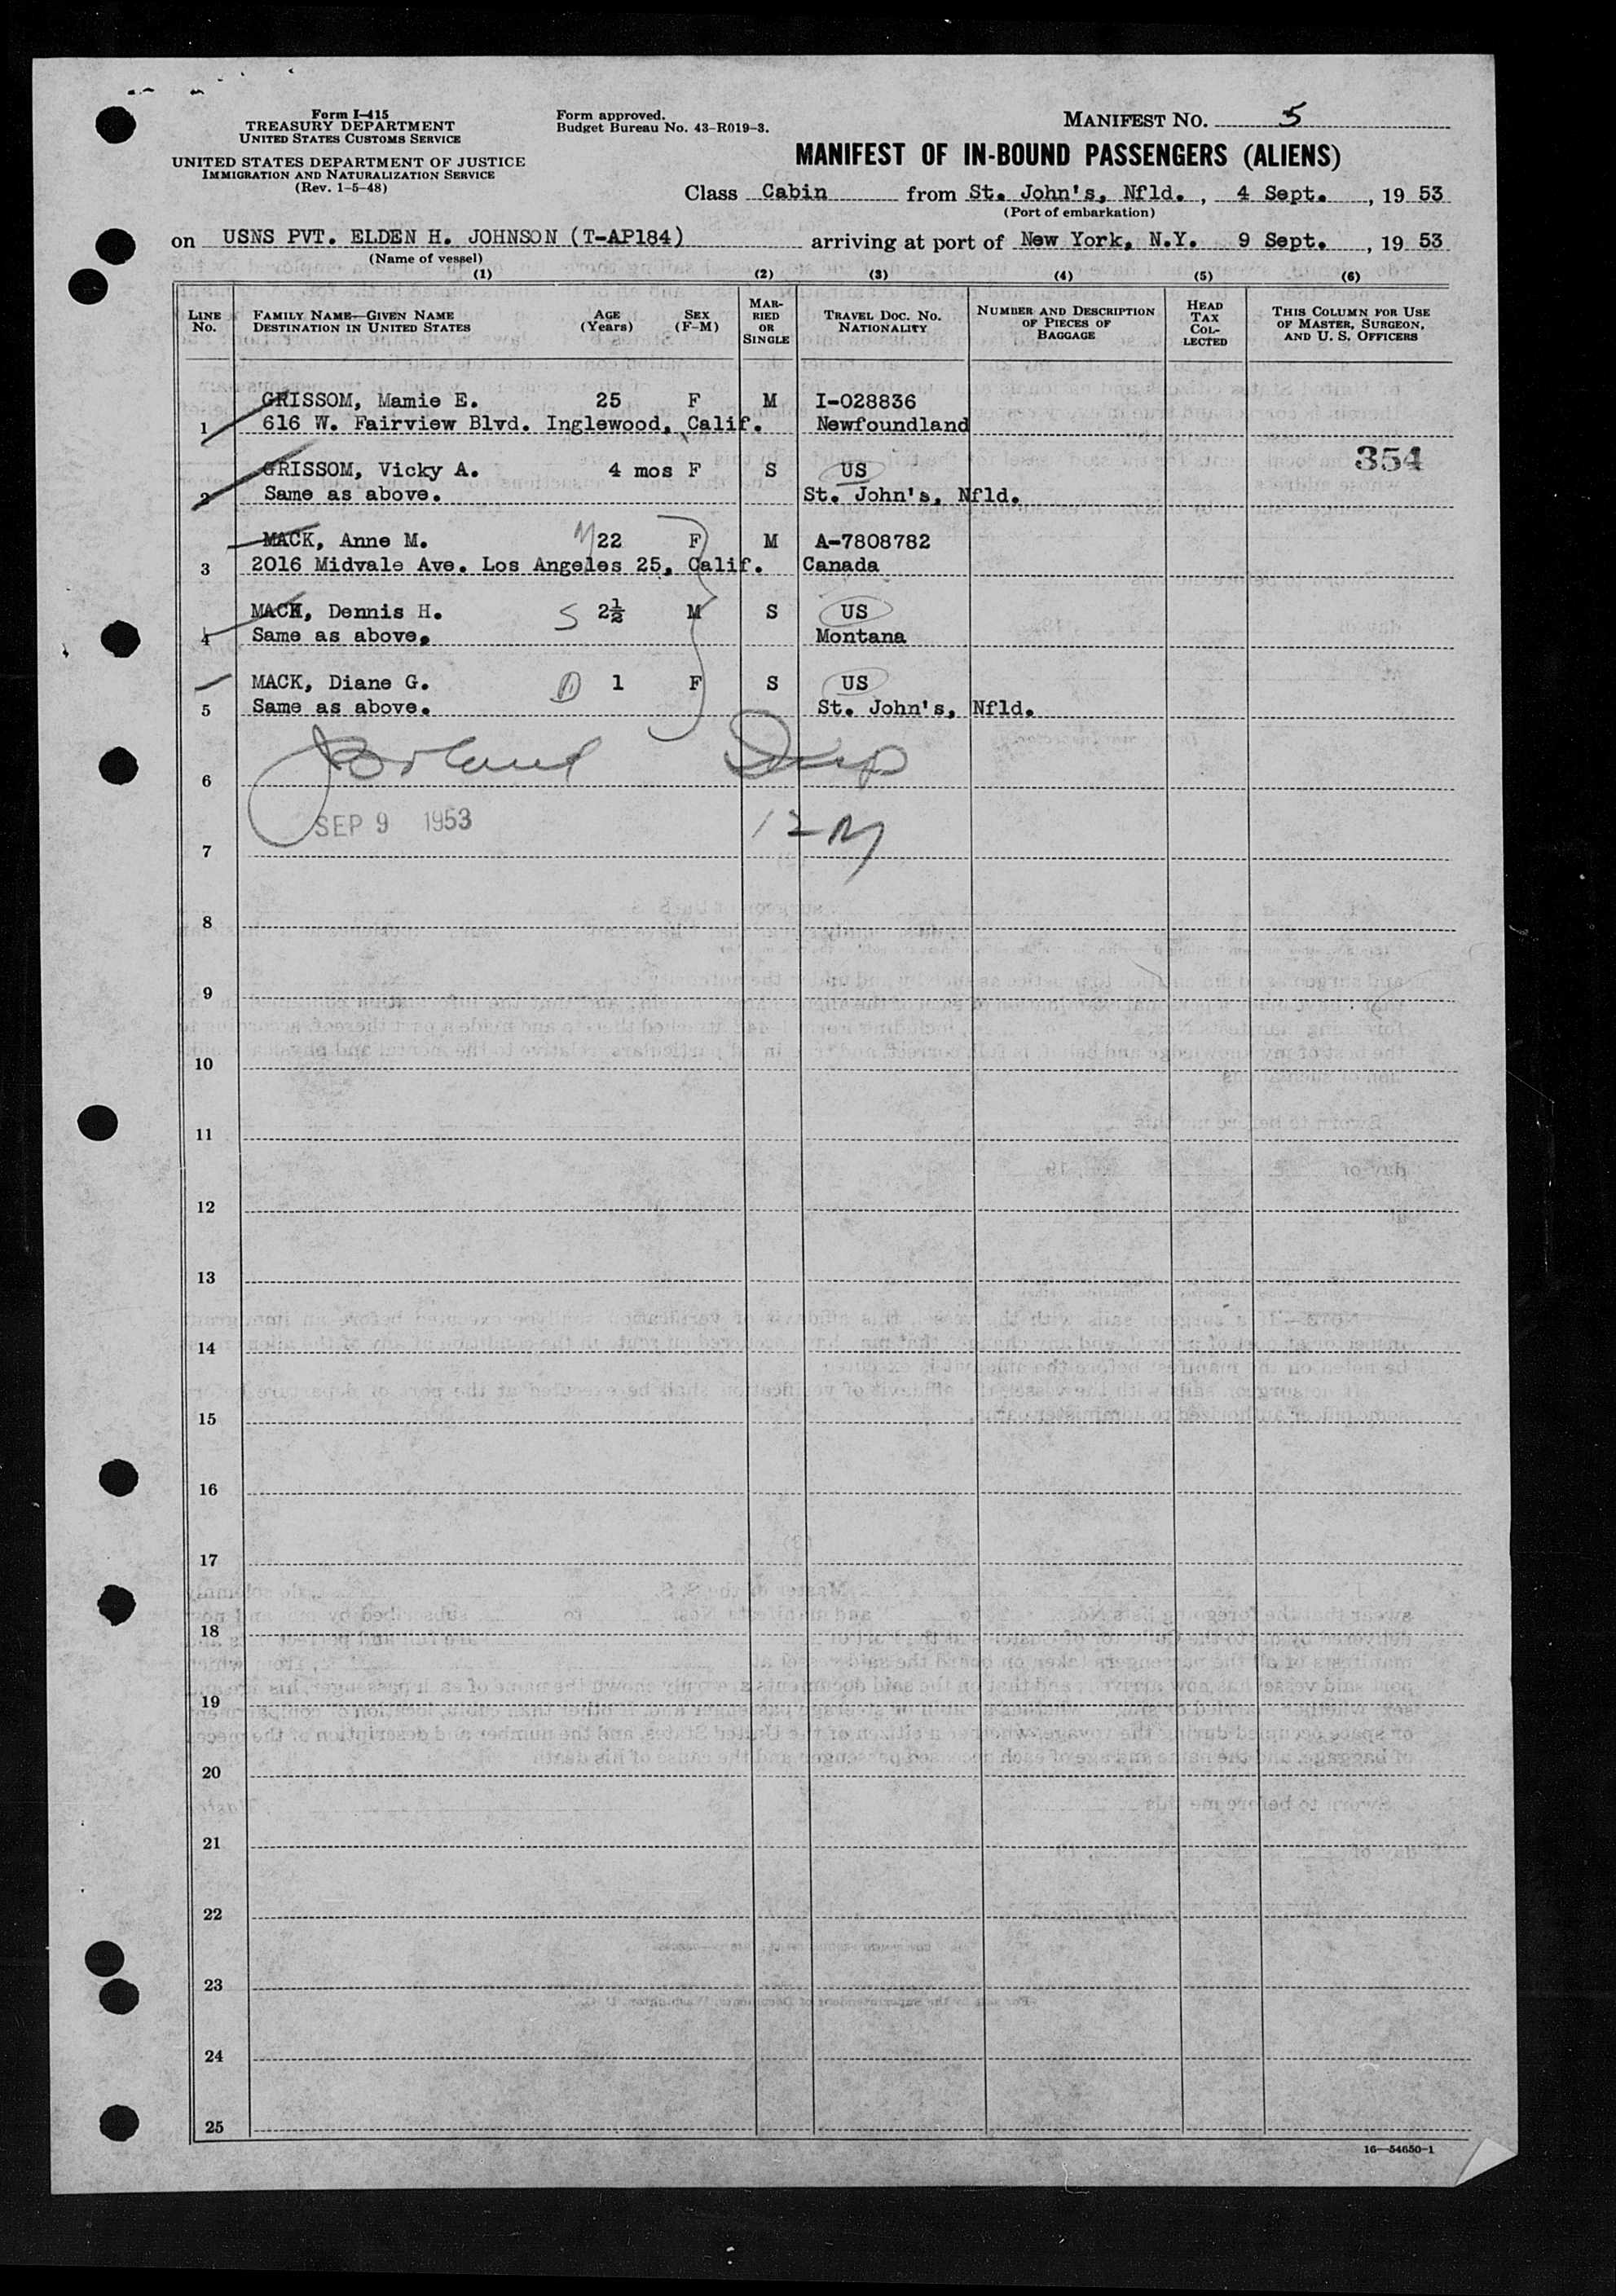 Form I-415
TREASURY DEPARTMENT
UNITED STATES CUSTOMS SERVICE
UNITED STATES DEPARTMENT OF JUSTICE
IMMIGRATION AND NATURALIZATION SERVICE
(Rev. 1-5-48)
Form approved.
Budget Bureau No. 43-R019-3.
MANIFEST NO. 5
MANIFEST OF IN-BOUND PASSENGERS (ALIENS)
Class Cabin from St. John's, Nfld., 4 Sept., 19 53
(Port of embarkation)
on USNS PVT. ELDEN H. JOHNSON (T-AP184) arriving at port of New York, N.Y. 9 Sept., 19 53
(Name of vessel)
(1) (2) (3) (4) (5) (6)
LINE No.
FAMILY NAME—GIVEN NAME
DESTINATION IN UNITED STATES
AGE (Years)
SEX (F-M)
MAR-RIED OR SINGLE
TRAVEL DOC. NO. NATIONALITY
NUMBER AND DESCRIPTION OF PIECES OF BAGGAGE
HEAD TAX COL-LECTED
THIS COLUMN FOR USE OF MASTER, SURGEON, AND U. S. OFFICERS
GRISSOM, Mamie E. 25 F M I-028836
1 616 W. Fairview Blvd. Inglewood, Calif. Newfoundland
354
GRISSOM, Vicky A. 4 mos F S US
2 Same as above. St. John's, Nfld.
MACK, Anne M. M 22 F M A-7808782
3 2016 Midvale Ave. Los Angeles 25, Calif. Canada
MACK, Dennis H. S 2½ M S US
4 Same as above. Montana
MACK, Diane G. D 1 F S US
5 Same as above. St. John's, Nfld.
6
SEP 9 1953
7
8
9
10
11
12
13
14
15
16
17
18
19
20
21
22
23
24
25
16—54650-1